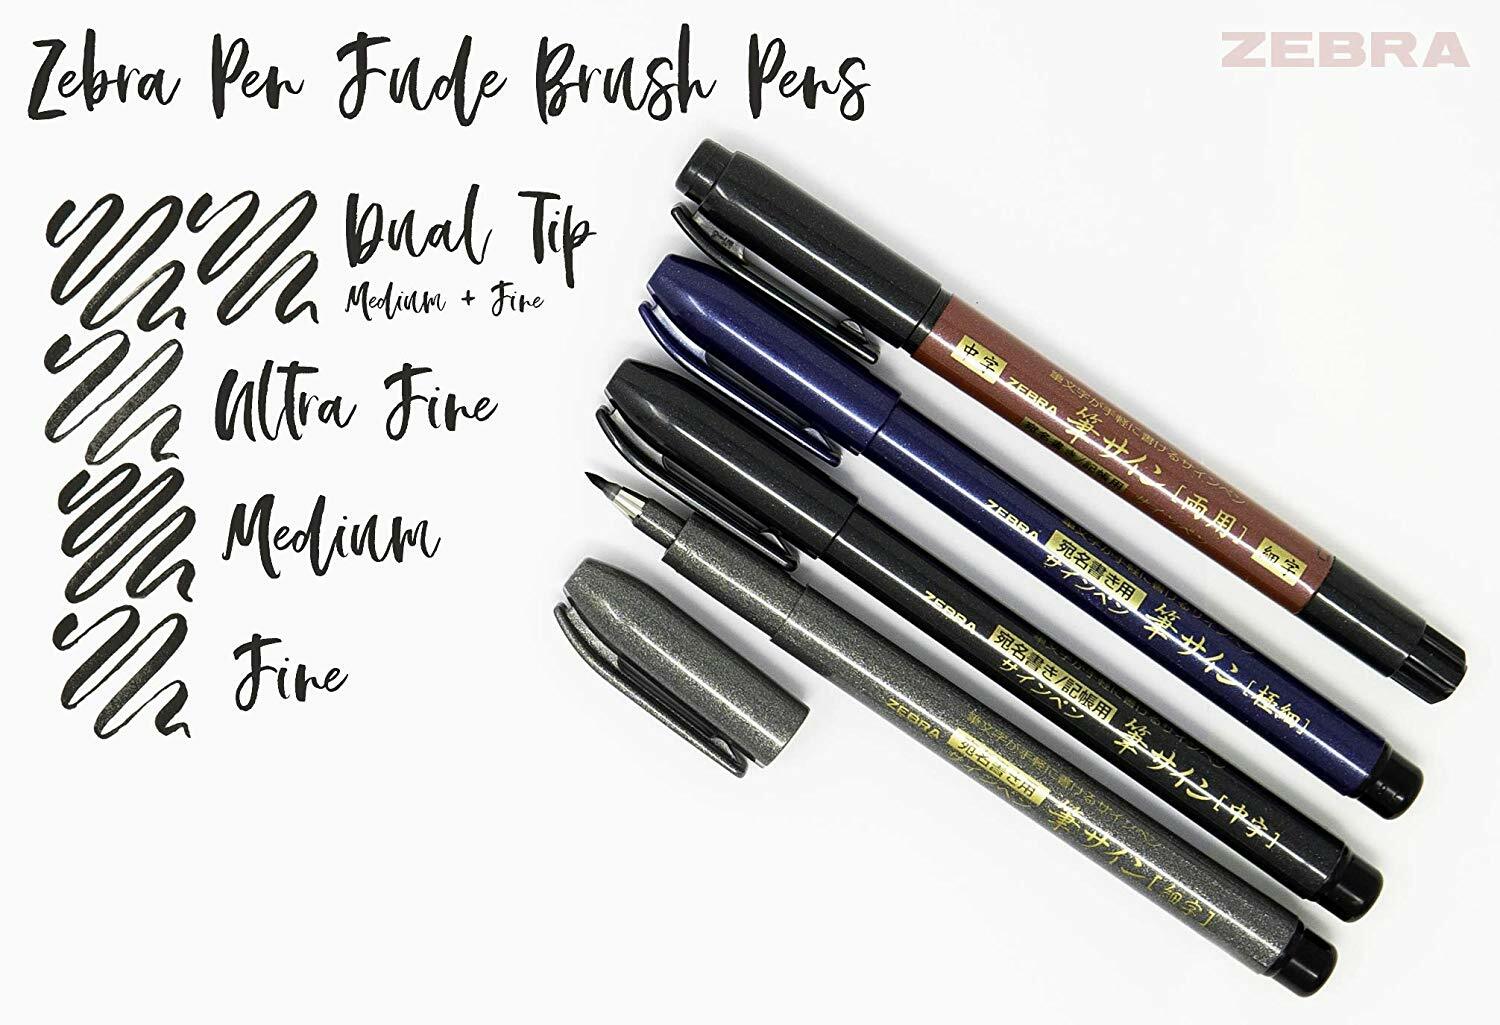 Zebra Pen Fude Brush Pens
ZEBRA
Dual Tip
Medium + Fine
Ultra Fine
Medium
Fine
中字
ZEBRA
筆文字が手軽に書けるサインペン
筆サイン［両用］
宛名書き/記帳用
サインペン
細字
ZEBRA
宛名書き用
サインペン
筆サイン［極細］
ZEBRA
宛名書き/記帳用
サインペン
筆サイン［中字］
ZEBRA
筆文字が手軽に書けるサインペン
宛名書き用
サインペン
筆サイン［細字］